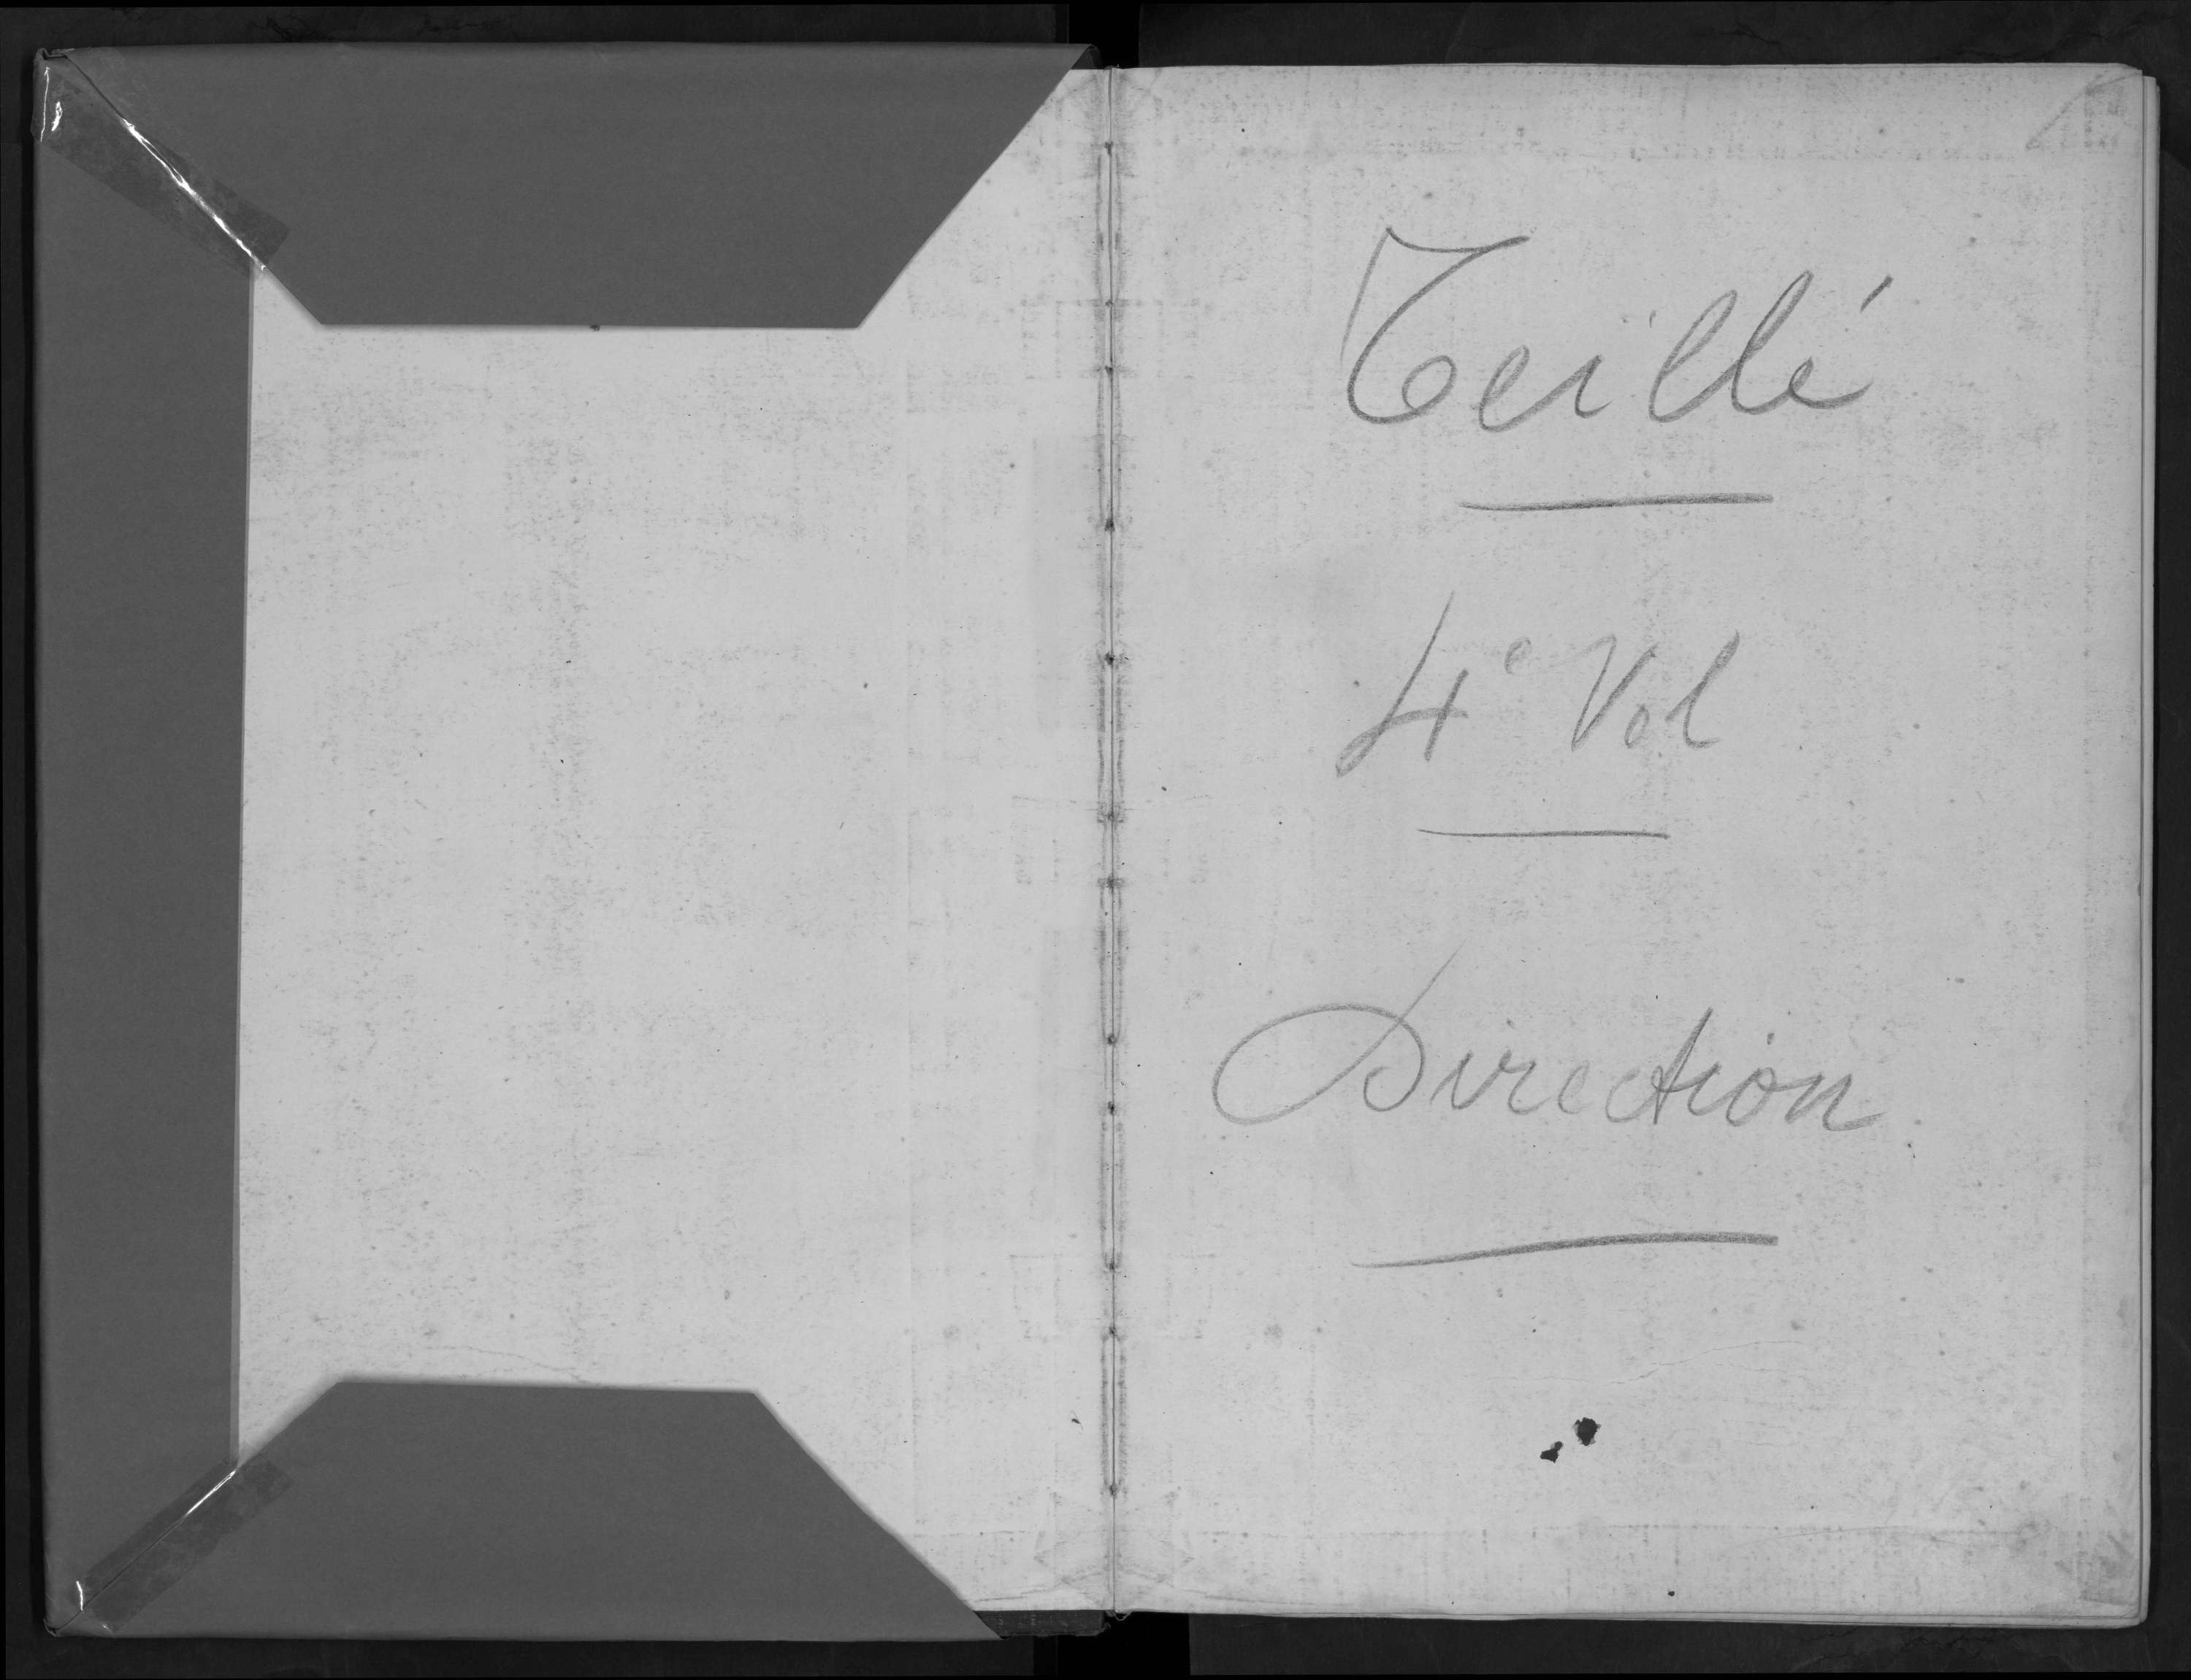 Teillé
4e Vol
Direction